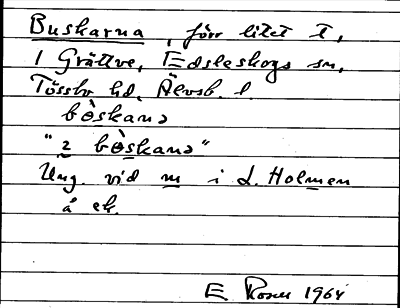 Buskarna, förr litet t,
1 Grättve, Edsleskogs sn,
Tössbo hd, Älvsb. l.
bòskanə
"2 bòskanə"
Ung. vid m i L. Holmen
å ek.
E Rosell 1964